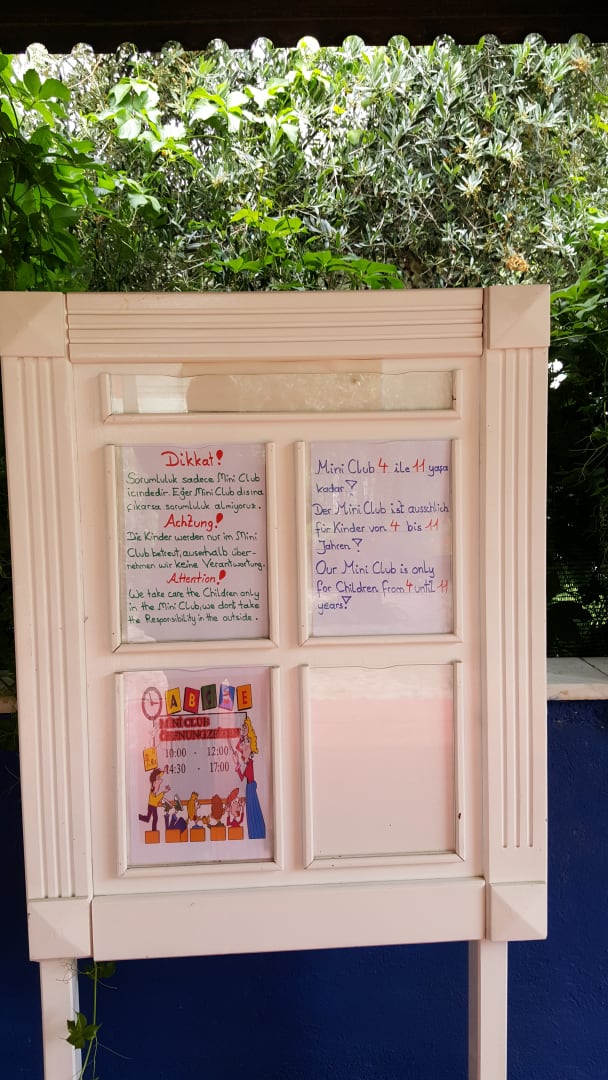 Dikkat!
Sorumluluk sadece Mini Club
icindedir. Eğer Mini Club disina
çikarsa sorumluluk almiyoruz.
Achtung!
Die Kinder werden nur im Mini
Club betreut, auserhalb über-
nehmen wir keine Verantwortung.
Attention!
We take care the Children only
in the Mini Club, we dont take
the Responsibility in the outside.
Mini Club 4 ile 11 yaşa
kadar!
Der Mini Club ist ausschlich
für Kinder von 4 bis 11
Jahren!
Our Mini Club is only
for Children from 4 until 11
years!
A B C D E
MINI CLUB
ÖFFNUNGZEITEN
10:00 - 12:00
14:30 - 17:00